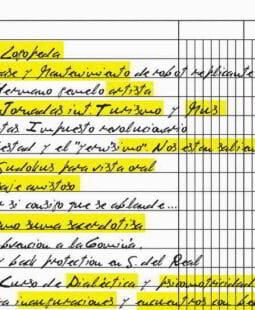 Logopeda
ase y Mantenimiento de robot replicante
Hermano gemelo artista
Jornadas int. Turismo y Mus
tas Impuesto revolucionario
estad y el "yersismo". Nos estan salien
Sudokus para vista oral
aje amistoso
r si consigo que se ablande...
mo suma sacerdotisa
bvencion a la Gomina.
y back protection en S. del Real
Curso de Dialéctica y psicomotricidad
a inauguraciones y encuentros con be